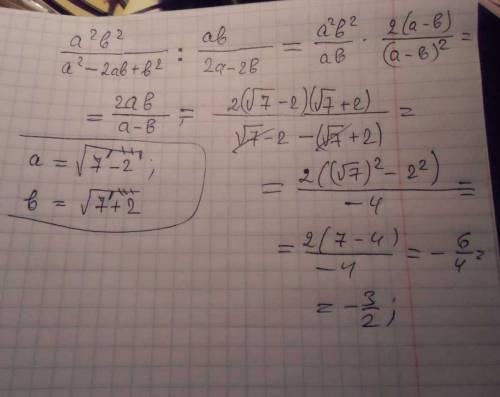 a²b²/(a²-2ab+b²) : ab/(2a-2b) = a²b²/ab · 2(a-b)/(a-b)² =
= 2ab/(a-b) = 2(√7-2)(√7+2)/(√7-2-(√7+2)) =
a = √7-2;
b = √7+2
= 2((√7)²-2²)/-4 =
= 2(7-4)/-4 = -6/4 =
= -3/2;